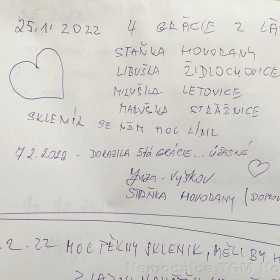 25.1. 2022 4 GRÁCIE Z
STAŇKA HOVORANY
LIBUŠKA ŽIDLOCHOVICE
MILUŠKA LETOVICE
MARUŠKA STRÁŽNICE
SKLENÍK SE NÁM MOC LÍBIL
7.2.2022 - DORAZILA 5tá GRÁCIE... ÚŽASNÁ
Jyza - Vyškov
STAŇKA HOVORANY
2.22 MOC PĚKNÝ SKLENÍK, MĚLI BY